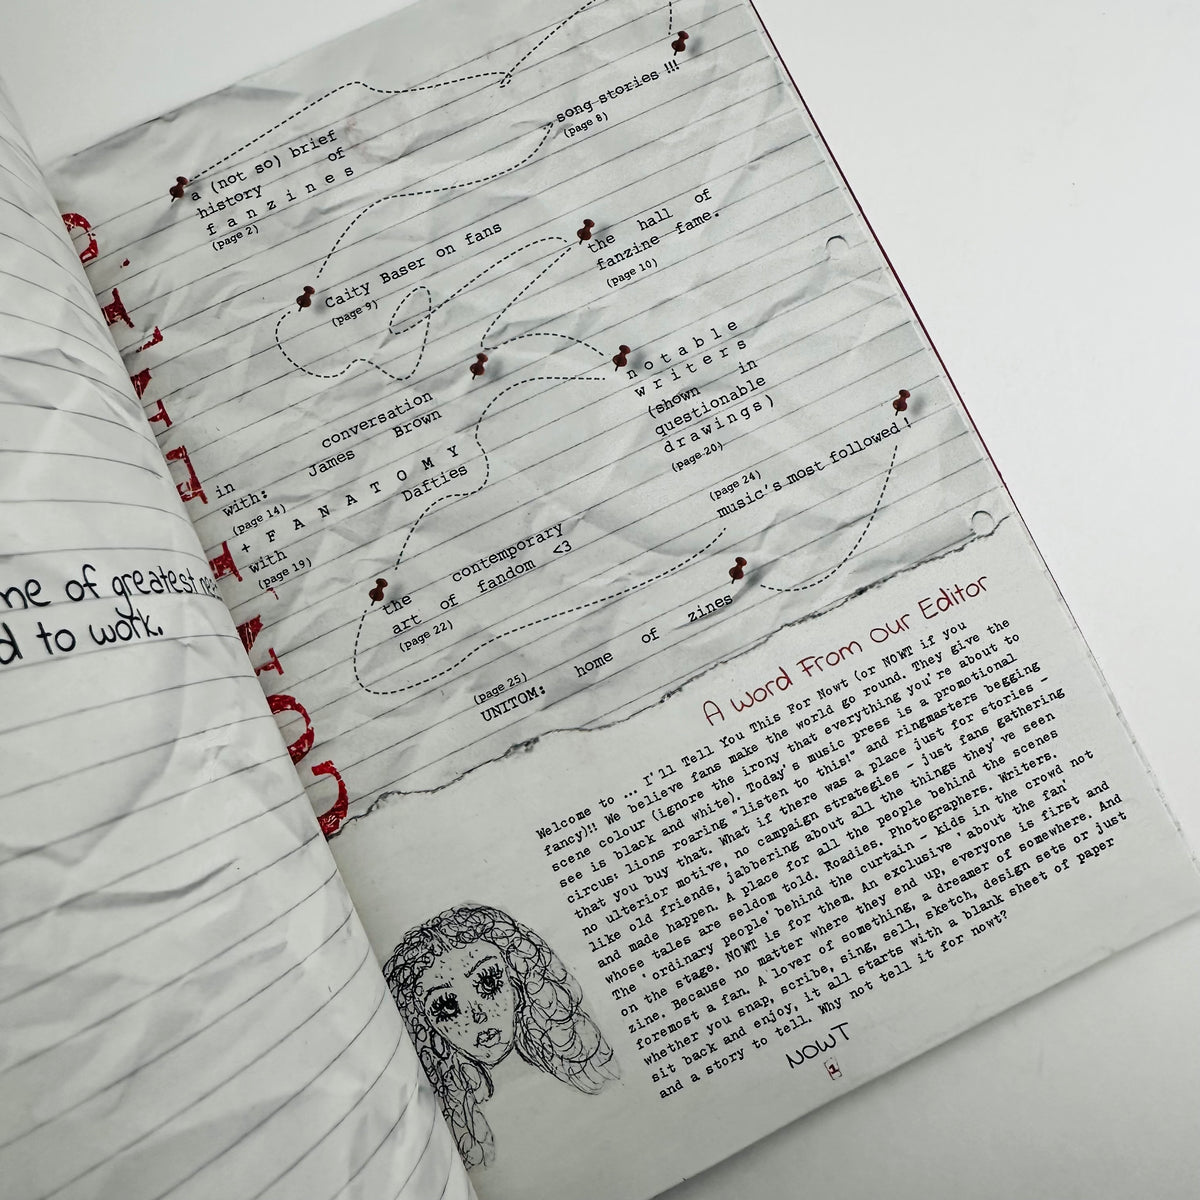 me of greatest
d to work.
a (not so) brief
history of
fanzines
(page 2)
song stories !!!
(page 8)
Caity Baser on fans
(page 9)
the hall of
fanzine fame.
(page 10)
in conversation
with: James Brown
(page 14)
+ FANATOMY
with Dafties
(page 19)
notable
writers
(shown in
questionable
drawings)
(page 20)
the contemporary
art of fandom <3
(page 22)
(page 24)
music's most followed!
(page 25)
UNITOM: home of zines
A word From our Editor
Welcome to ... I'll Tell You This For Nowt (or NOWT if you
fancy)!! We believe fans make the world go round. They give the
scene colour (ignore the irony that everything you're about to
see is black and white). Today's music press is a promotional
circus: lions roaring "listen to this!" and ringmasters begging
that you buy that. What if there was a place just for stories -
no ulterior motive, no campaign strategies - just fans gathering
like old friends, jabbering about all the things they've seen
and made happen. A place for all the people behind the scenes
whose tales are seldom told. Roadies. Photographers. Writers.
The 'ordinary people' behind the curtain - kids in the crowd not
on the stage. NOWT is for them. An exclusive 'about the fan'
zine. Because no matter where they end up, everyone is first and
foremost a fan. A lover of something, a dreamer of somewhere. And
whether you snap, scribe, sing, sell, sketch, design sets or just
sit back and enjoy, it all starts with a blank sheet of paper
and a story to tell. Why not tell it for nowt?
NOWT
1